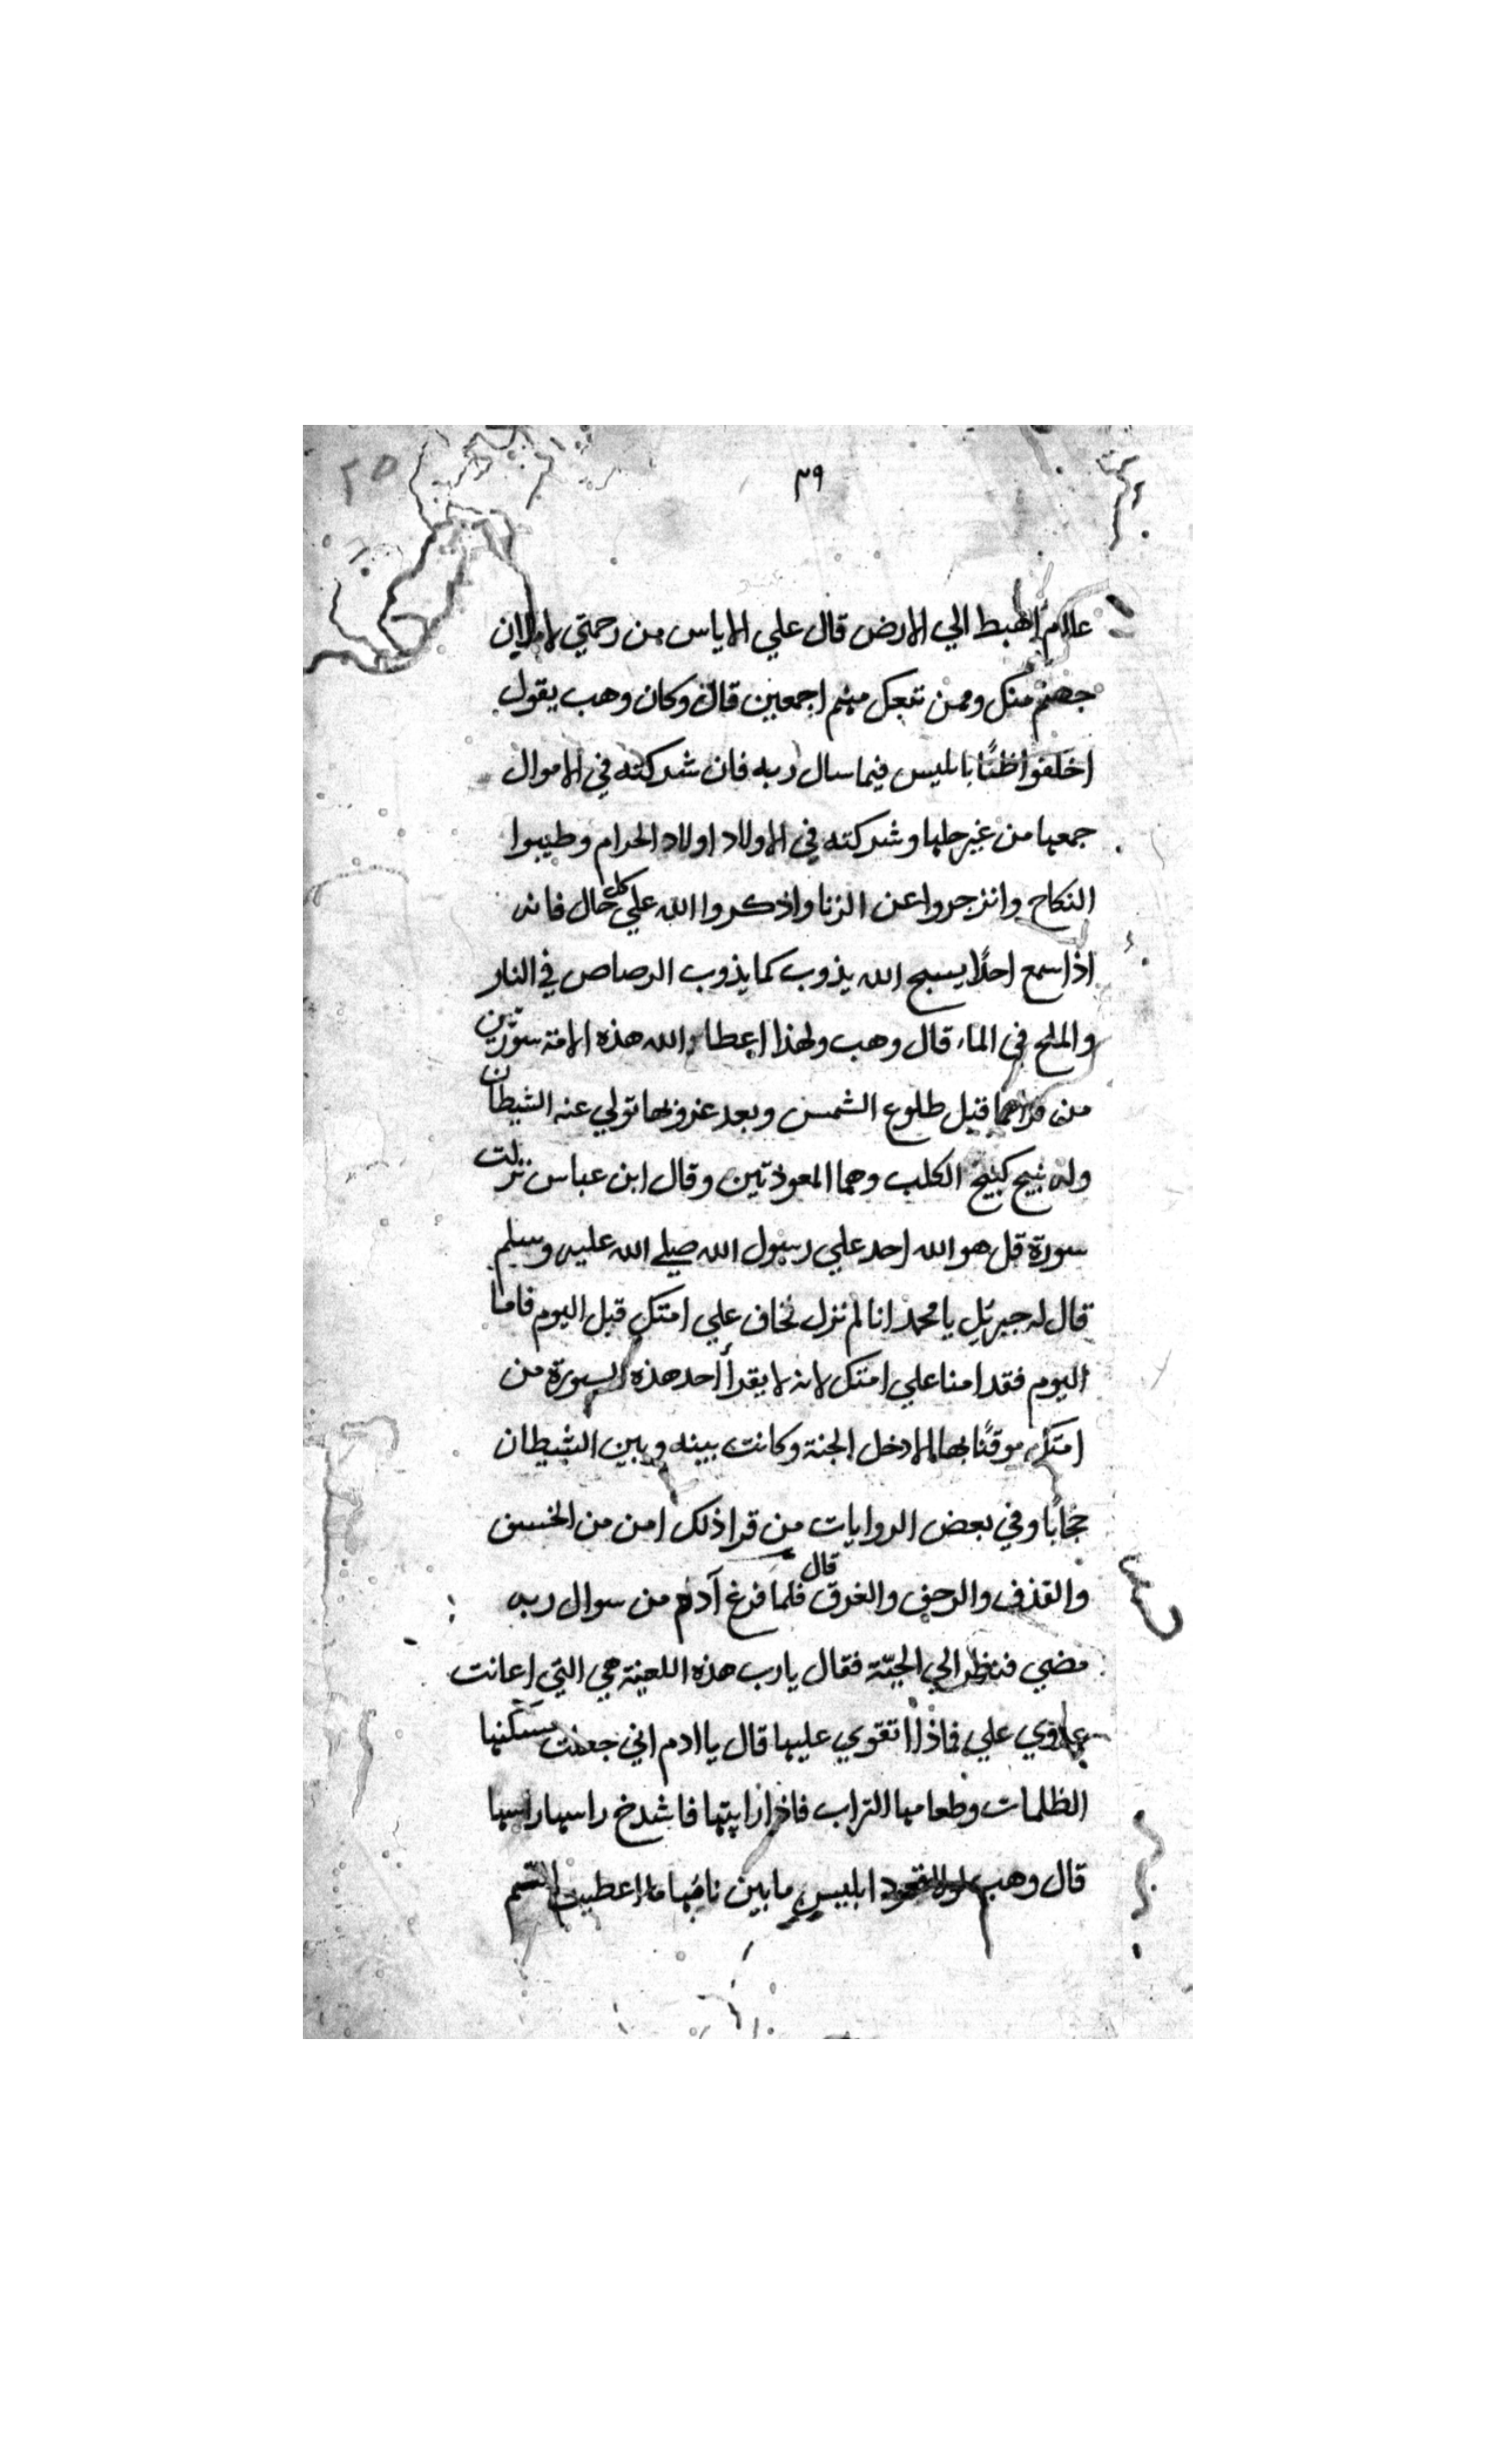 ٣٩
٢٥
علام اهبط الي الارض قال علي الاياس من رحمتي لاملان
جهنم منك وممن تبعك منهم اجمعين قال وكان وهب يقول
اخلفوا ظنًا بابليس فيما سال ربه فان شركته في الاموال
جمعها من غير حلها وشركته في الاولاد اولاد الحرام وطيبوا
النكاح وانزجروا عن الزنا واذكروا الله علي كل حال فانه
اذا سمع احدًا يسبح الله يذوب كما يذوب الرصاص في النار
والملح في الماء قال وهب ولهذا اعطا الله هذه الامة سورتين
من قراهما قبل طلوع الشمس وبعد غروبها تولي عنه الشيطان
وله نبيح كنبيح الكلب وهما المعوذتين وقال ابن عباس نزلت
سورة قل هو الله احد علي رسول الله صلي الله عليه وسلم
قال له جبرئل يا محمد انا لم نزل نخاف علي امتك قبل اليوم فاما
اليوم فقد امنا علي امتك لانه لا يقرأ أحد هذه السورة من
امتك موقنًا بها الا دخل الجنة وكانت بينه وبين الشيطان
حجابًا وفي بعض الروايات من قرا ذلك امن من الخسف
والقذف والرجف والغرق قال فلما فرغ آدم من سوال ربه
مضي فنظر الي الحيّة فقال يا رب هذه اللعينة هي التي اعانت
عدوي علي فماذا اتقوي عليها قال يا ادم اني جعلت مسكنها
الظلمات وطعامها التراب فاذا رايتها فاشدخ راسها راسها
قال وهب ابليس ما بين نابها ما اعطيت السم